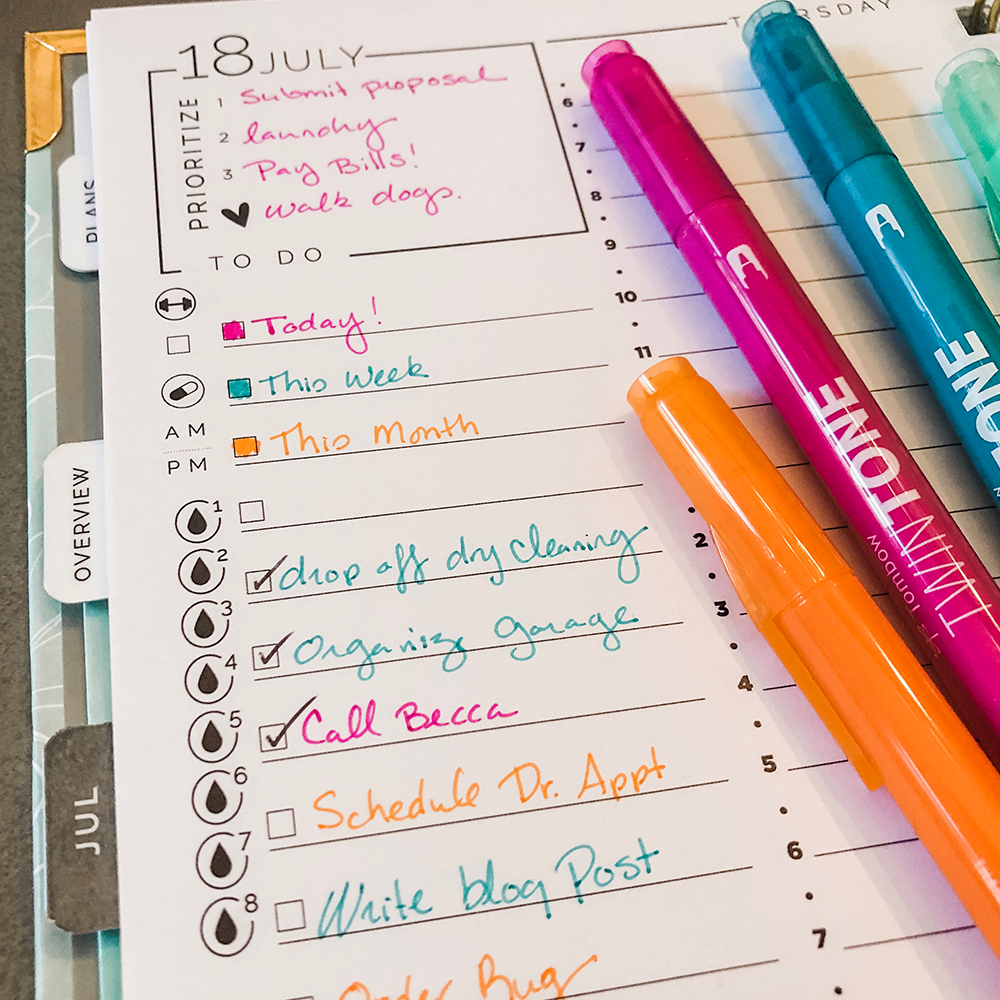 THURSDAY
18 JULY
PRIORITIZE
1 Submit proposal
2 laundry
3 Pay Bills!
walk dogs.
TO DO
Today!
This Week
This Month
AM
PM
1
2 drop off dry cleaning
3 Organize garage
4
5 Call Becca
6 Schedule Dr. Appt
7
8 Write blog Post
Order Bug
6
7
8
9
10
11
2
3
4
5
6
7
PLANS
OVERVIEW
JUL
TWINTONE
Tombow